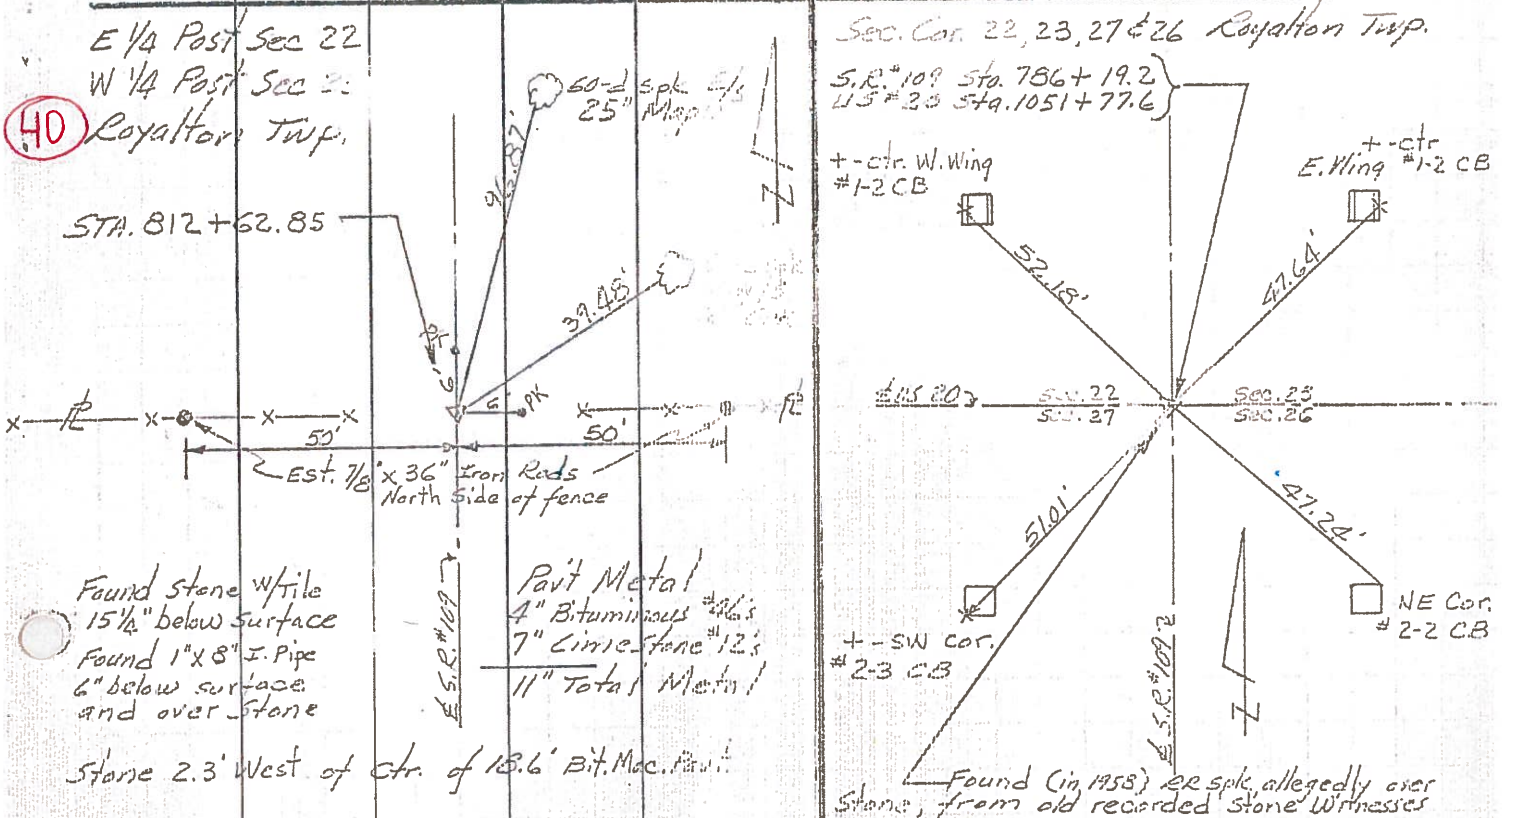 E 1/4 Post Sec 22
W 1/4 Post Sec
40
Royalton Twp.
STA. 812+62.85
60-d spk
25" Maple
39.48'
6'
5'
PK
50'
50'
Est. 7/8" x 36" Iron Rods
North Side of fence
Found Stone W/Tile
15 1/4" below surface
Found 1" X 8" I. Pipe
6" below surface
and over Stone
℄ S.R. #109
Pav't Metal
4" Bituminous #46's
7" Limestone #12's
11" Total Metal
Stone 2.3' West of ctr. of 18.6' Bit. Mac. Pav't.
N
Sec. Cor. 22, 23, 27 & 26 Royalton Twp.
S.R. #109 Sta. 786+19.2
US #20 Sta. 1051+77.6
+ - ctr. W. Wing
#1-2 CB
+ - ctr
E. Wing #1-2 CB
52.18'
47.64'
℄ US 20
Sec. 22
Sec. 27
Sec. 23
Sec. 26
51.01'
47.24'
+ - SW cor.
# 2-3 CB
NE Cor.
# 2-2 CB
℄ S.R. #109
N
Found (in 1958) RR spk, allegedly over
Stone, from old recorded Stone Witnesses